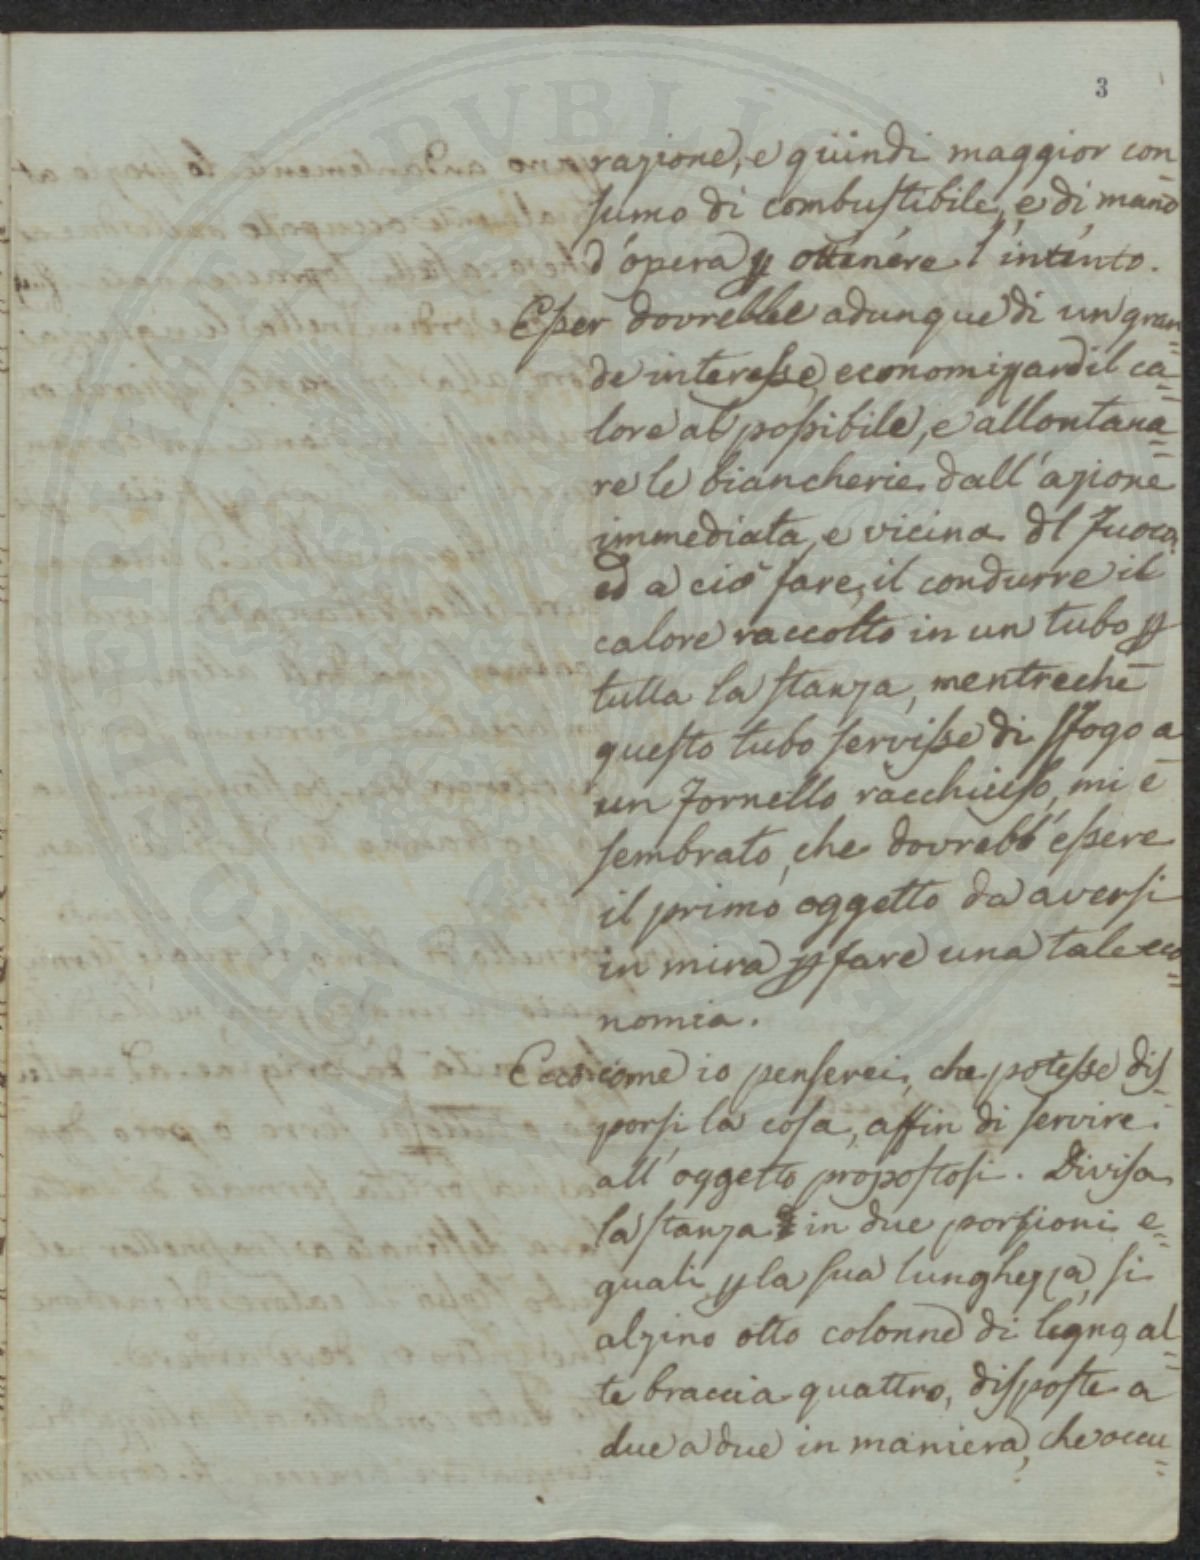 3
razione, e quindi maggior con=
sumo di combustibile, e di mano
d'opera p ottenére l'inténto.
Esser dovrebbe adunque di un gran=
de interesse, economizzar il ca=
lore al possibile, e allontana=
re le biancherie dall'azione
immediata, e vicina dl fuoco,
ed a ciò fare, il condurre il
calore raccolto in un tubo p
tutta la stanza, mentrechè
questo tubo servisse di sfogo a
un fornello racchiuso, mi è
sembrato, che dovrebb'essere
il primo oggetto da aversi
in mira p fare una tale eco=
nomia.
Ecco come io penserei, che potesse dis=
porsi la cosa, affin di servire
all'oggetto propostosi. Divisa
la stanza in due porzioni e=
guali p la sua lunghezza, si
alzino otto colonne di legno, al=
te braccia quattro, disposte a
due a due in maniera, che occu=